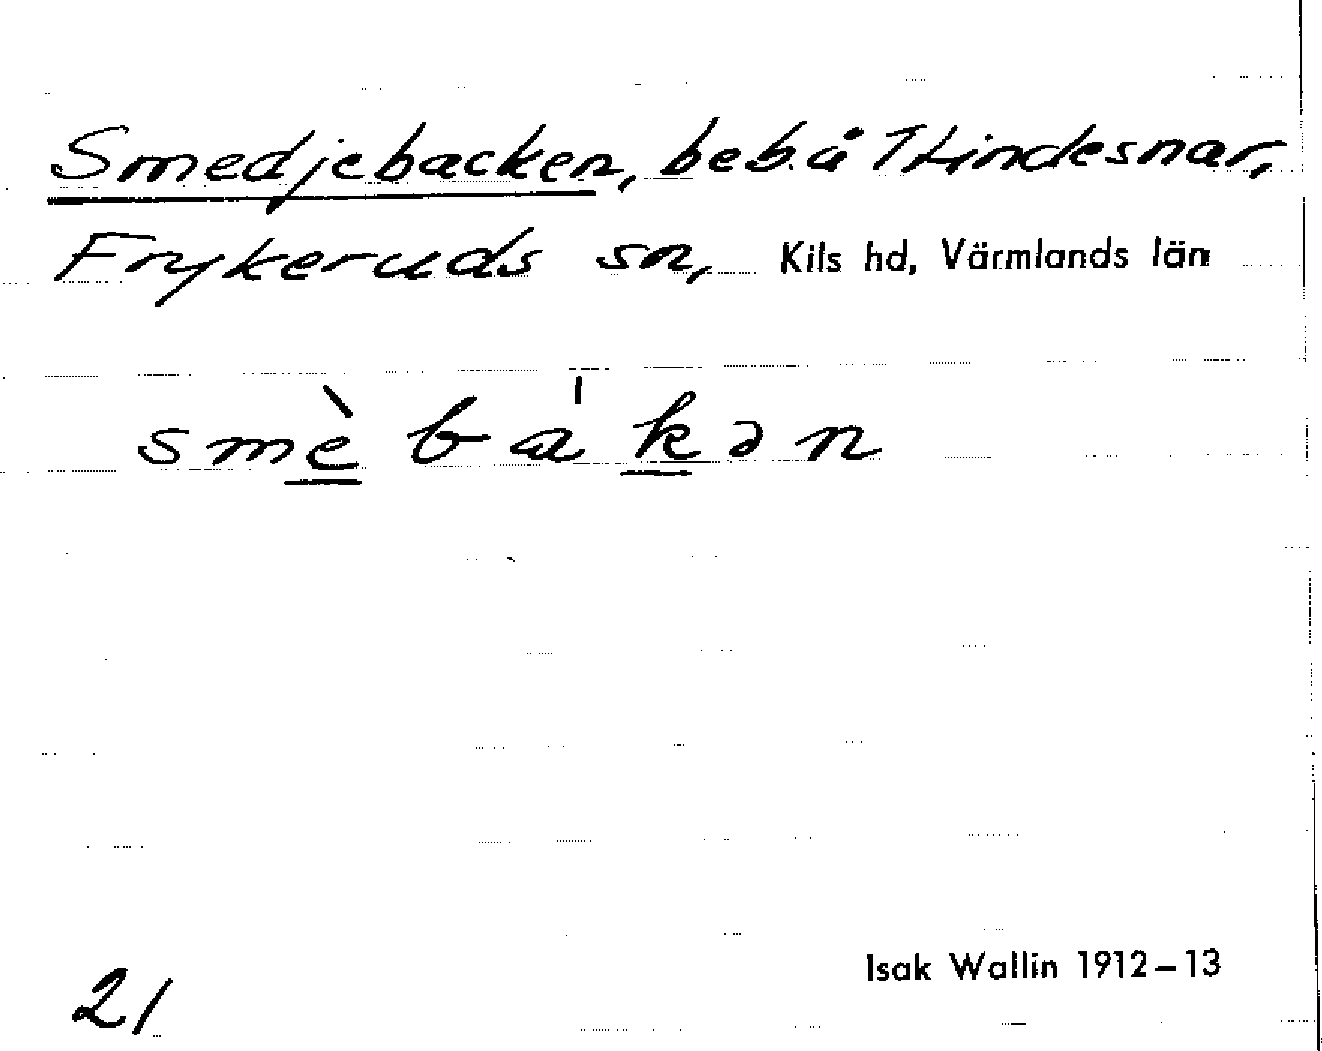 Smedjebacken, beb. å 1 Lindesnar,
Frykeruds sn, Kils hd, Värmlands län
smè bákən
Isak Wallin 1912–13
21